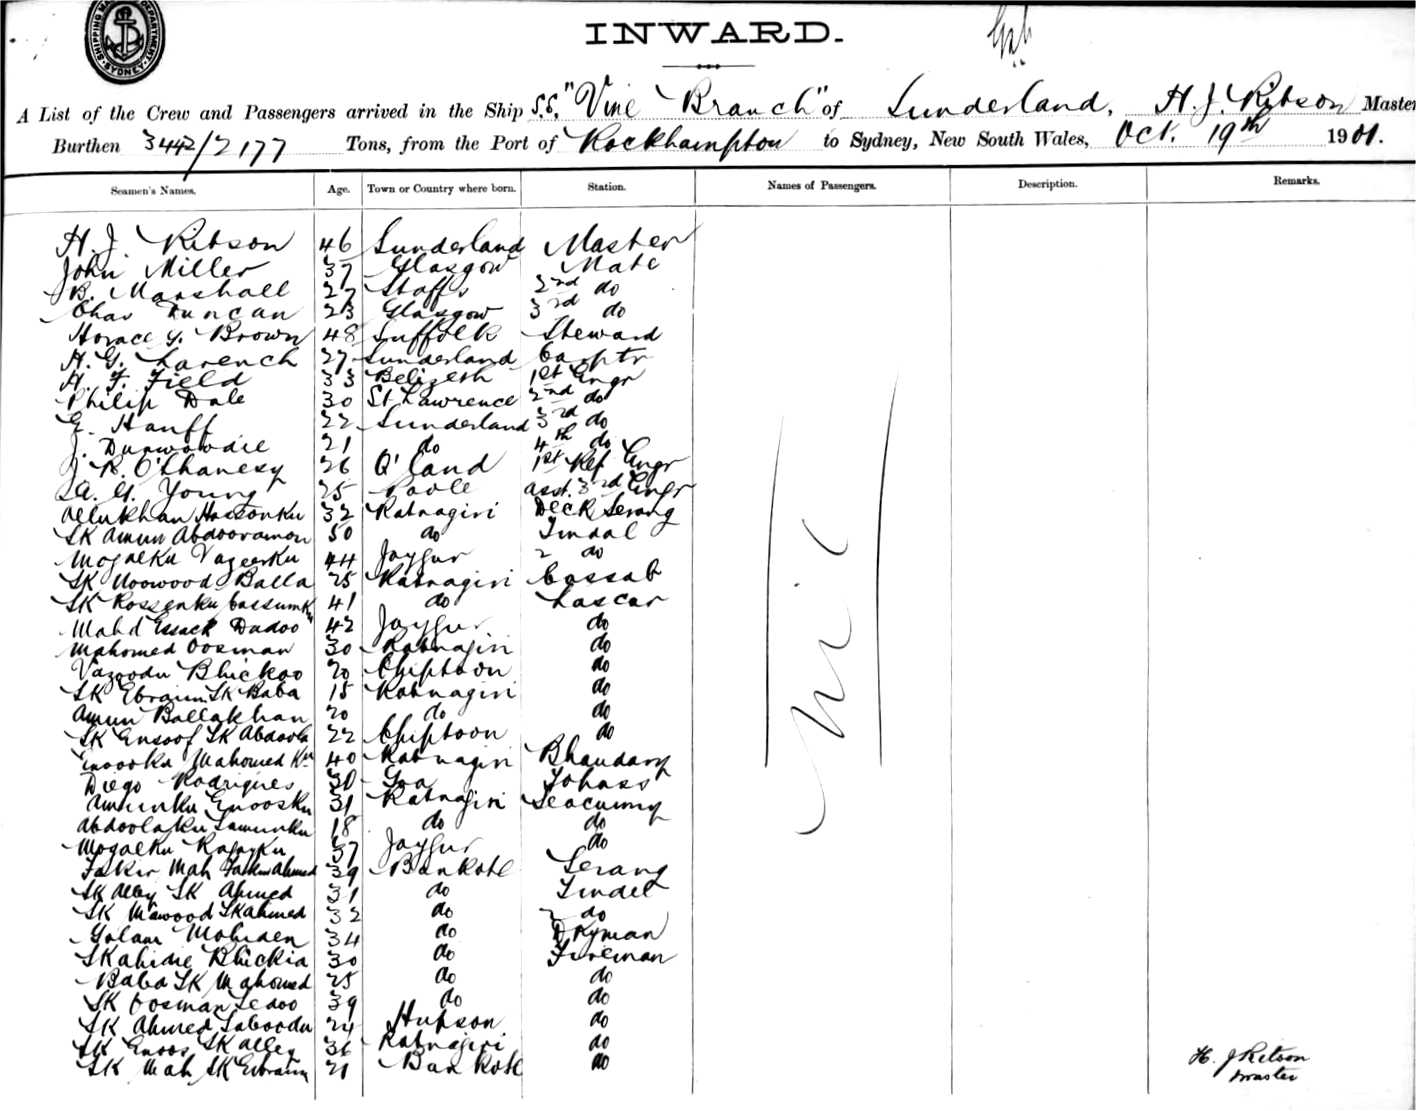 SHIPPING MA DEPARTMENT SYDNEY
INWARD.
A List of the Crew and Passengers arrived in the Ship S.S. "Vine Branch" of Sunderland, H. J. Ritson Master
Burthen 3442/2177 Tons, from the Port of Rockhampton to Sydney, New South Wales, Oct. 19th 1901.
Seamen's Names. Age. Town or Country where born. Station. Names of Passengers. Description. Remarks.
H. J. Ritson 46 Sunderland Master
John Miller 37 Glasgow Mate
B. Marshall 27 Staffs 2nd do
Chas Duncan 23 Glasgow 3rd do
Horace G. Brown 48 Suffolk Steward
H. G. Larench 27 Sunderland Carptr
H. F. Field 33 1st Engr
Philip Dale 30 St Lawrence 2nd do
E. Hanff 22 Sunderland 3rd do
J. Dunwoodie 21 do 4th do
J. R. O'Shanesy 26 Q'land 1st Ref Engr
A. G. Young 25 Poole asst. 3rd Engr
Allukhan Hassonku 32 Ratnagiri Deck Serang
SK Amun Abdooramon 50 do Tindal
Mogalku Vazeerku 44 Jaygur 2 do
SK Balla 25 Ratnagiri Cassab
SK Cassumku 41 do Lascar
Mahd Essack Dadoo 42 Jaygur do
Mahomed Oosman 30 Ratnagiri do
Vazoodu Bhickoo 20 Chiptoon do
SK Ebraim SK Baba 15 Ratnagiri do
Amun Ballakhan 20 do do
SK Ensoof SK Abdoola 22 Chiptoon do
Mahomed Ku 40 Ratnagiri Bhandary
Diego Rodrigues 30 Goa Tohass
Amunku Enoosku 31 Ratnagiri Seacunny
Abdoolaku Lamunku 18 do do
Mogalku 37 Jaygur do
Fakir Mah 39 Bankote Serang
SK Alley SK Ahmed 31 do Tindel
SK SK Ahmed 32 do 2 do
Golam Mohiden 34 do Dkyman
SK Bhickia 30 do Fireman
Baba SK Mahomed 25 do do
SK Oosman 39 do do
SK Ahmed 24 do
SK Enoos SK Alley 36 Ratnagiri do
SK Mah SK Ebraim 21 Bankote do
Nil
H. J Ritson
Master